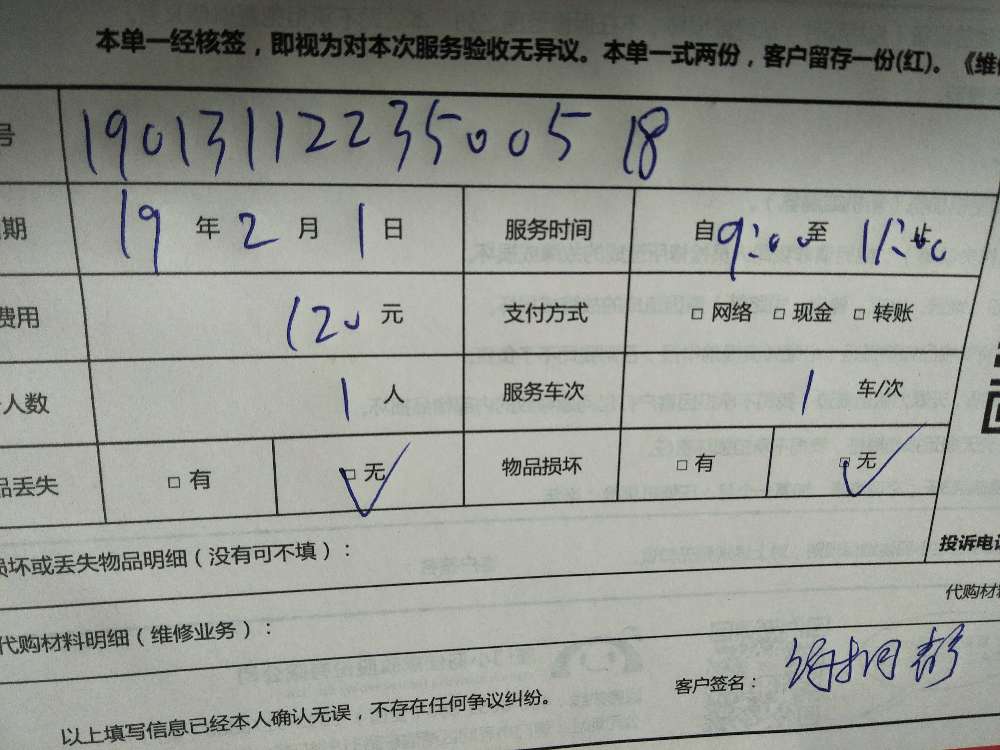 本单一经核签，即视为对本次服务验收无异议。本单一式两份，客户留存一份(红)。《维
号 19013112235005 18
期 19 年 2 月 1 日 服务时间 自 9:00 至 11:00
费用 120 元 支付方式 □ 网络 □ 现金 □ 转账
人数 1 人 服务车次 1 车/次
品丢失 □ 有 □ 无 物品损坏 □ 有 □ 无
损坏或丢失物品明细（没有可不填）：
投诉电话
代购材料
代购材料明细（维修业务）：
客户签名：
以上填写信息已经本人确认无误，不存在任何争议纠纷。